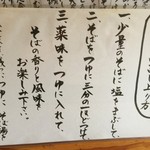 召し上り方
一、少量のそばに塩をまぶして
二、そばをつゆに三分の一ほどつけて
三、薬味をつゆに入れて、
そばの香りと風味を
お楽しみ下さい。